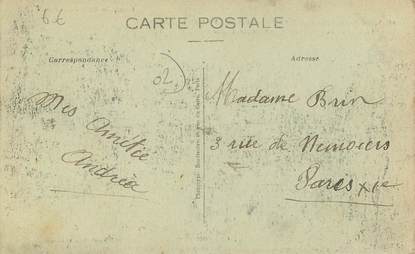 6€
CARTE POSTALE
Correspondance
Adresse
02
Mes Amitié
Andréa
Madame Brin
3 rue de Nemours
Paris XIe